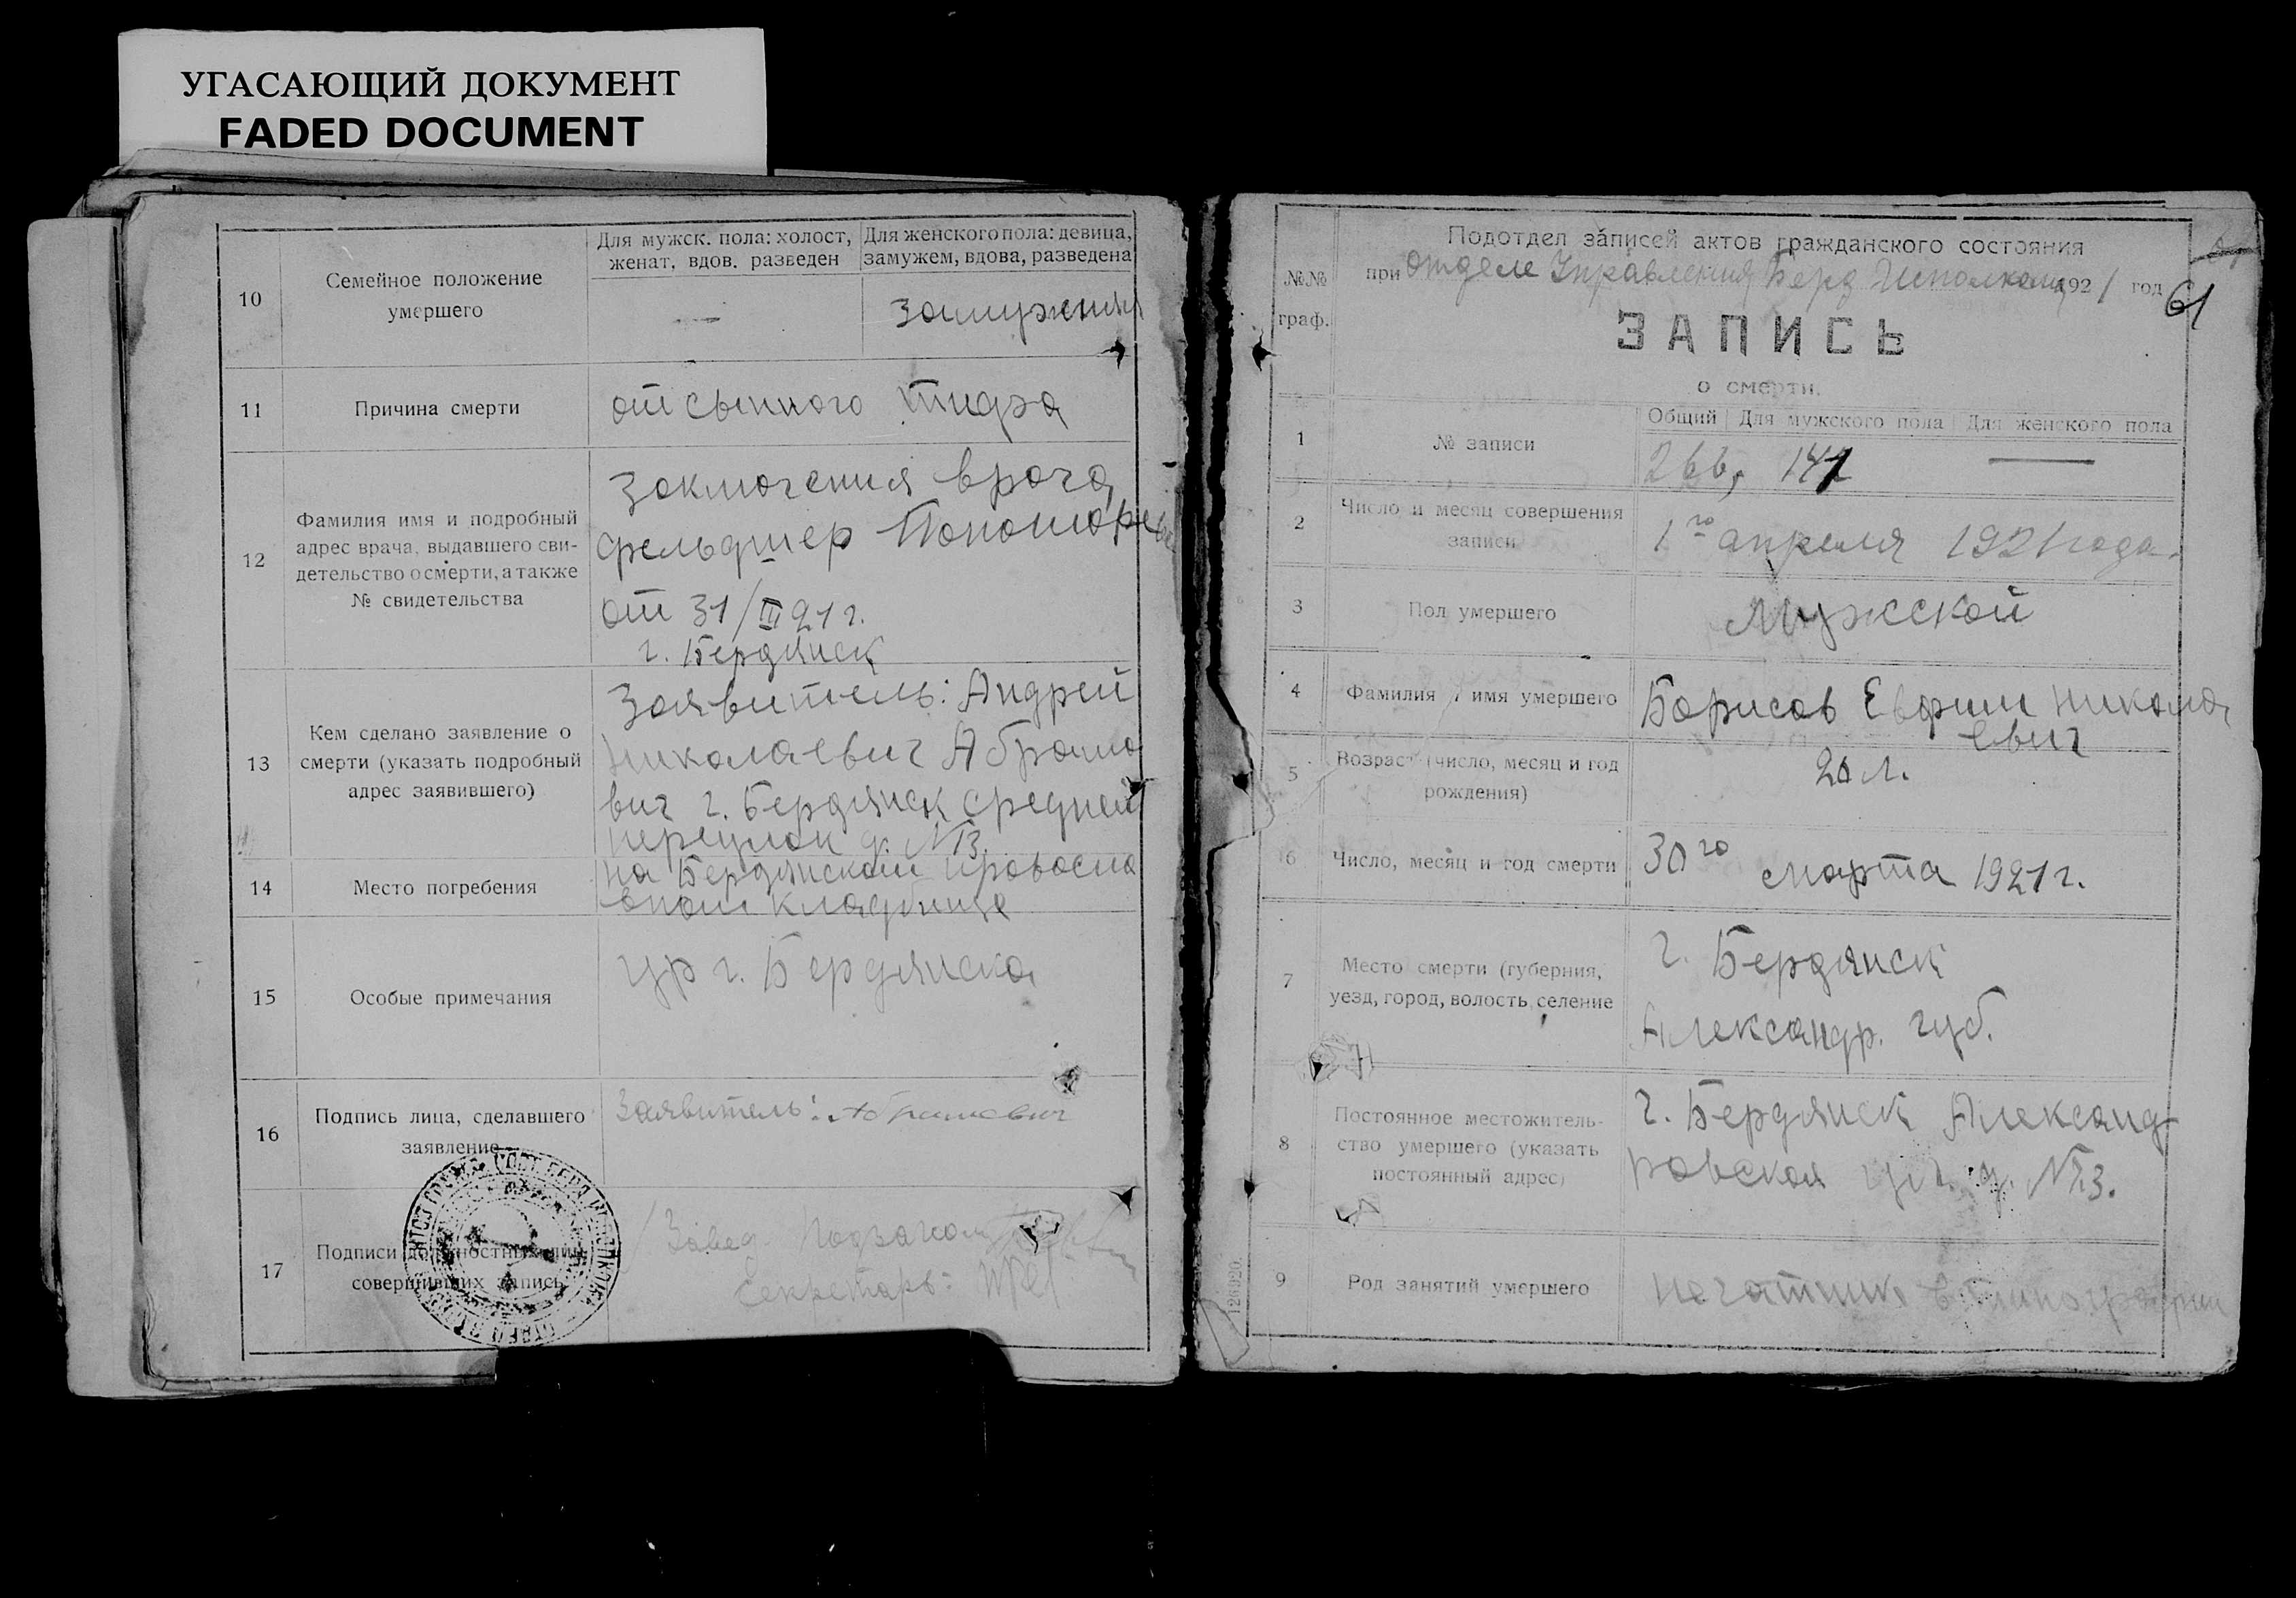 УГАСАЮЩИЙ ДОКУМЕНТ
FADED DOCUMENT
10
Семейное положение
умершего
Для мужск. пола: холост,
женат, вдов. разведен
Для женского пола: девица,
замужем, вдова, разведена
—
Замужняя
11
Причина смерти
от сыпного тифа
12
Фамилия имя и подробный
адрес врача, выдавшего сви-
детельство о смерти, а также
№ свидетельства
Заключения врача
фельдшер
от 31/III 21 г.
г. Бердянск
13
Кем сделано заявление о
смерти (указать подробный
адрес заявившего)
Заявитель: Андрей
Николаевич Абрамо
вич г. Бердянск средней
переулок д. № 13.
14
Место погребения
на Бердянском правосла
вном кладбище
15
Особые примечания
ур г. Бердянска
16
Подпись лица, сделавшего
заявление
Заявитель: Абрамович
17
Подписи должностных лиц
совершивших запись
Завед
Секретарь:
№№
граф.
Подотдел записей актов гражданского состояния
при Отделе Управления Берд Исполкома 1921 год
61
ЗАПИСЬ
о смерти.
1
№ записи
Общий
Для мужского пола
Для женского пола
266, 141 —
2
Число и месяц совершения
записи
1го апреля 1921 года.
3
Пол умершего
Мужской
4
Фамилия и имя умершего
Борисов Евфим Никола
евич
5
Возраст (число, месяц и год
рождения)
20 л.
6
Число, месяц и год смерти
30го марта 1921 г.
7
Место смерти (губерния,
уезд, город, волость, селение
г. Бердянск
Александр. губ.
8
Постоянное местожитель-
ство умершего (указать
постоянный адрес)
г. Бердянск Александ-
ровская ул. д. № 3.
9
Род занятий умершего
печатник в типографии
126920.